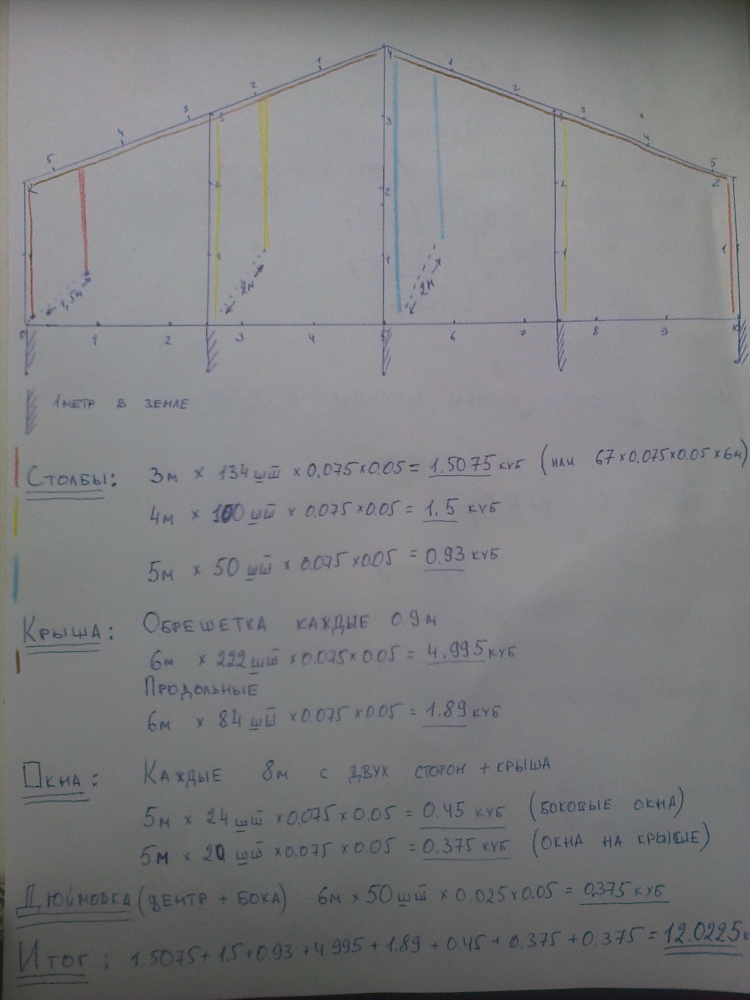 5 4 3 2 1 4 1 2 3 4 5
2 3 3 3 2
2 2 2
1 1 1 1 1
1,5м 2м 2м
0 1 2 3 4 5 6 7 8 9 10
1метр в земле
Столбы: 3м × 134 шт × 0,075×0.05 = 1.5075 куб (или 67×0,075×0.05×6м)
4м × 100 шт × 0.075×0.05 = 1.5 куб
5м × 50 шт × 0.075×0.05 = 0.93 куб
Крыша: Обрешетка каждые 0.9м
6м × 222 шт × 0.075×0.05 = 4.995 куб
Продольные
6м × 84 шт × 0.075×0.05 = 1.89 куб
Окна: Каждые 8м с двух сторон + крыша
5м × 24 шт × 0,075×0.05 = 0.45 куб (боковые окна)
5м × 20 шт × 0.075×0.05 = 0.375 куб (окна на крыше)
Дюймовка (центр + бока) 6м × 50 шт × 0.025×0.05 = 0,375 куб
Итог: 1.5075 + 1.5 + 0.93 + 4.995 + 1.89 + 0.45 + 0.375 + 0.375 = 12.0225к